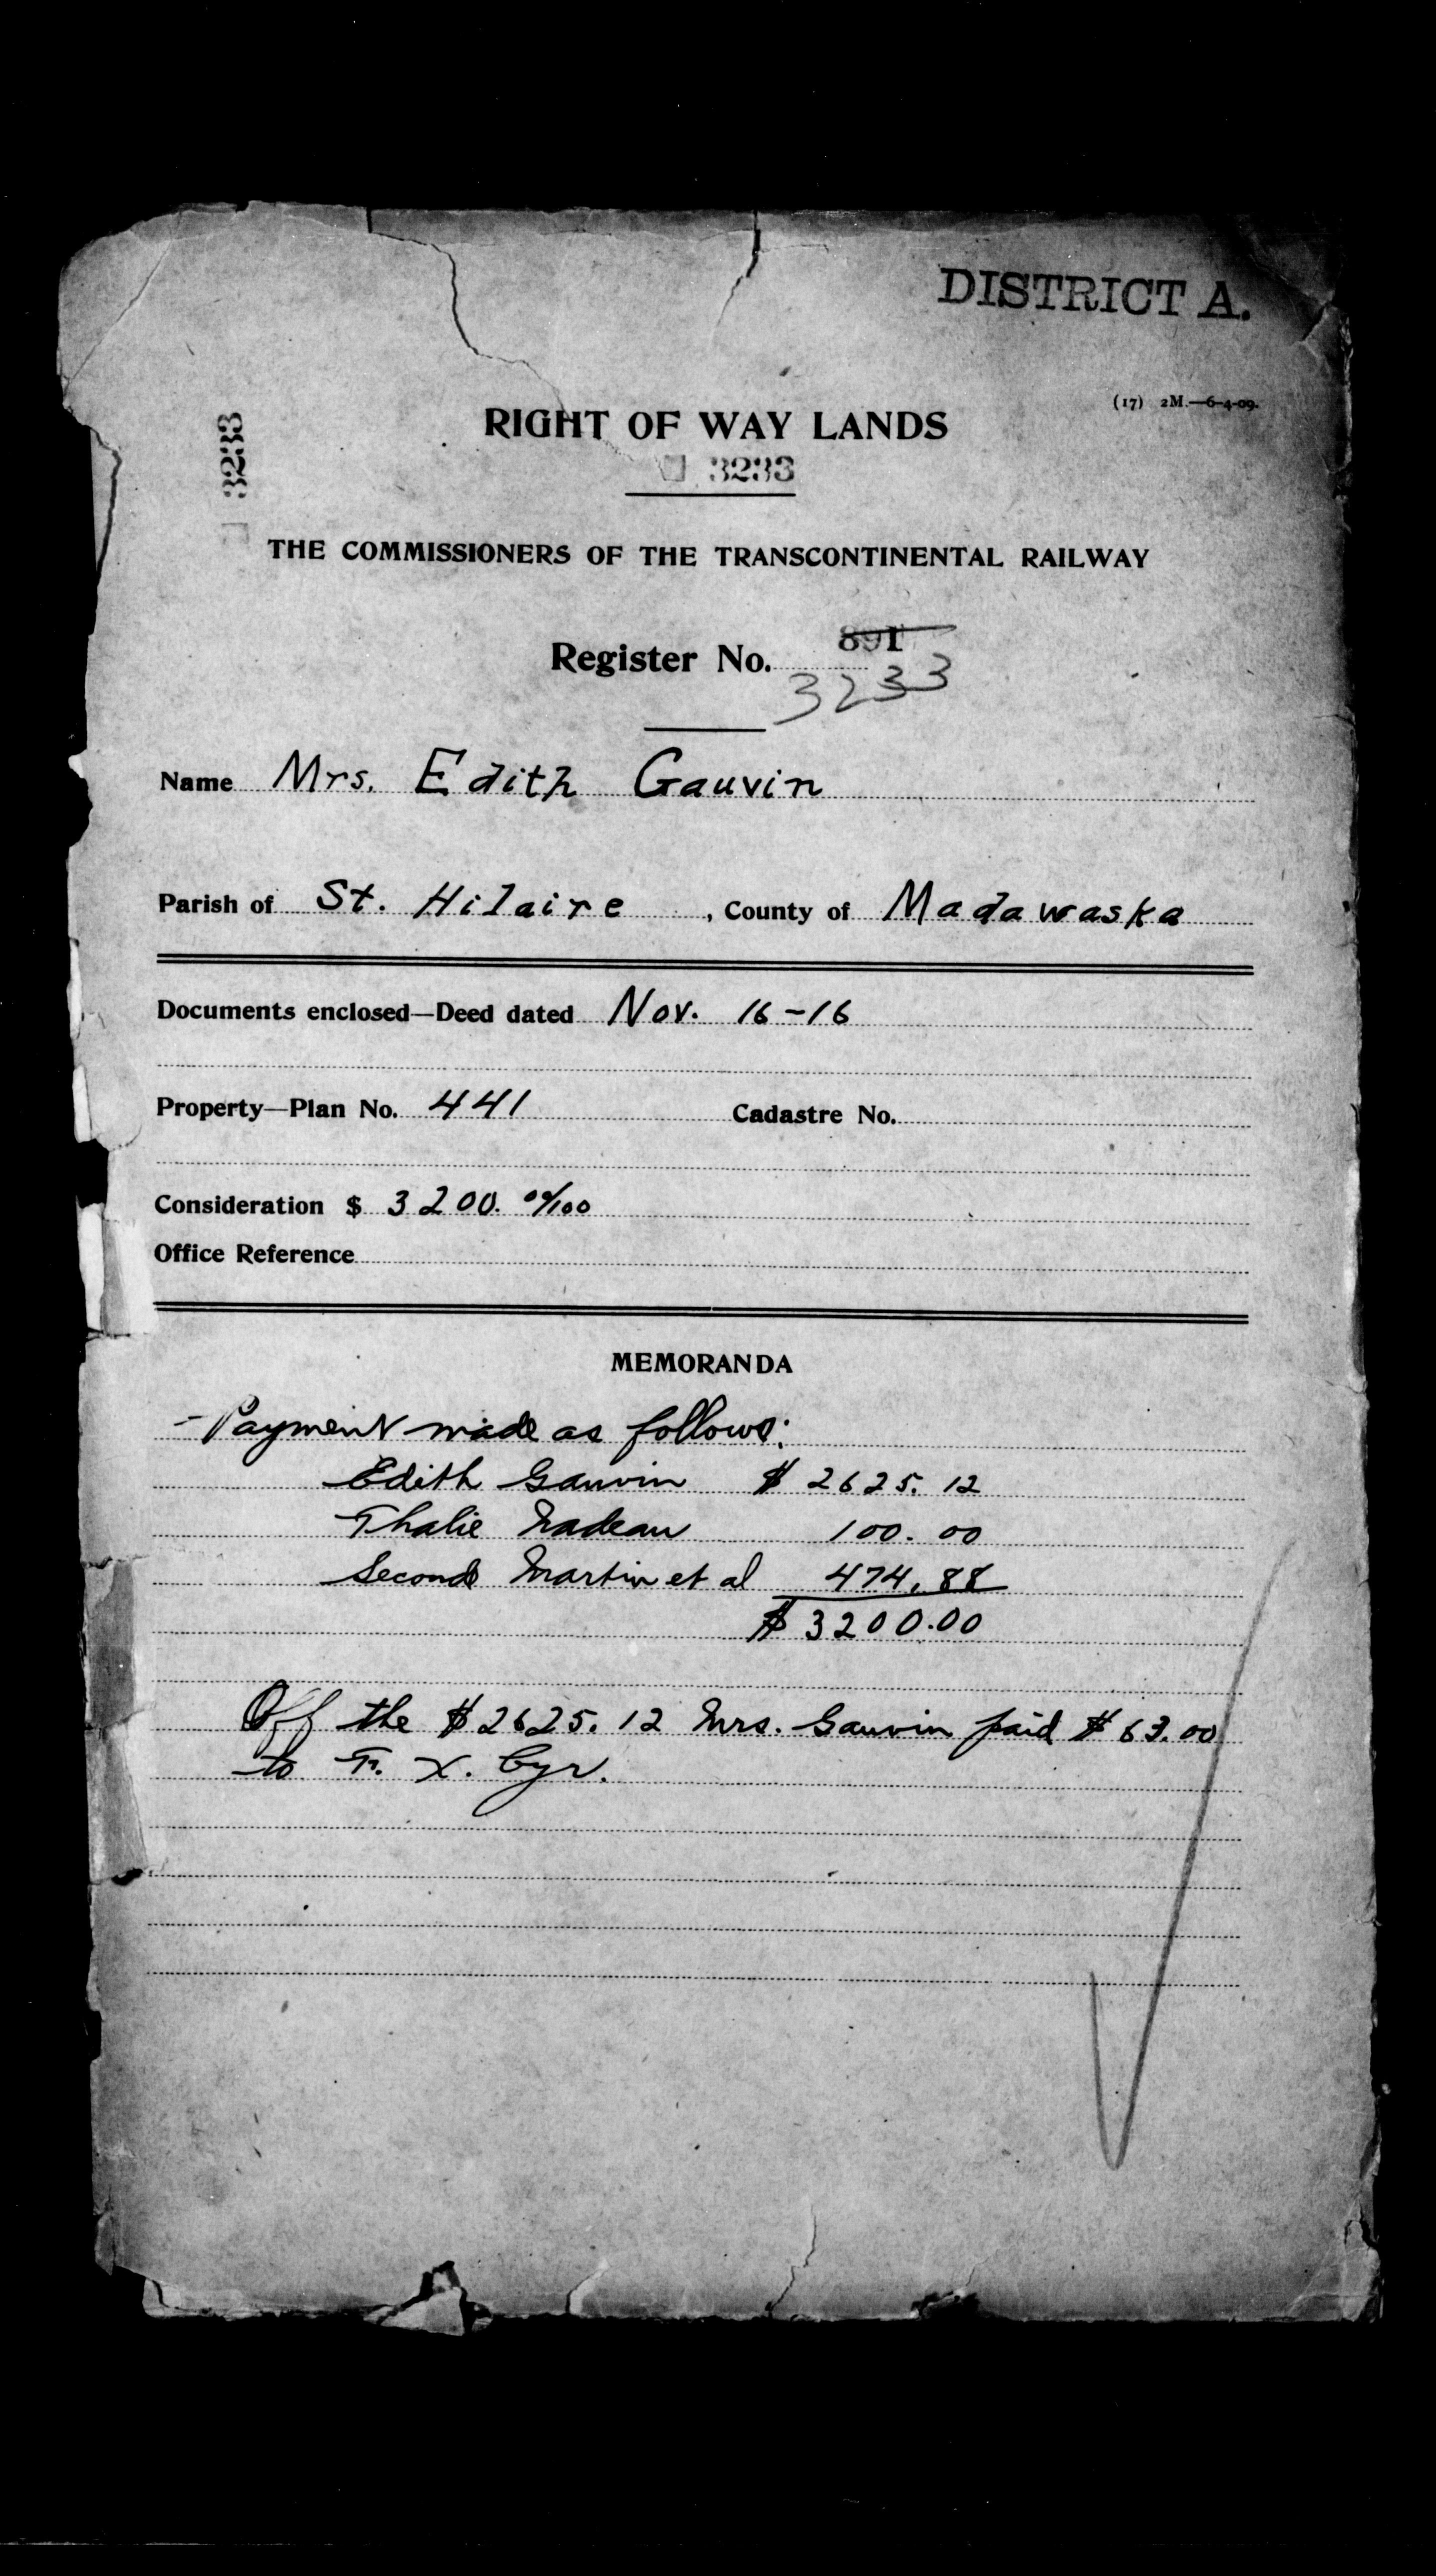 DISTRICT A.
(17) 2M.—6-4-09.
RIGHT OF WAY LANDS
3233
3233
THE COMMISSIONERS OF THE TRANSCONTINENTAL RAILWAY
Register No. 891
3233
Name Mrs. Edith Gauvin
Parish of St. Hilaire, County of Madawaska
Documents enclosed—Deed dated Nov. 16-16
Property—Plan No. 441 Cadastre No.
Consideration $ 3200. 00/100
Office Reference
MEMORANDA
- Payment made as follows:
Edith Gauvin $ 2625.12
Thalie Nadeau 100.00
Second Martin et al 474.88
$ 3200.00
Off the $2625.12 Mrs. Gauvin paid $63.00
to F. X. Cyr.